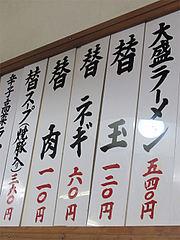 大盛ラーメン 五四〇円
替玉 一二〇円
替ネギ 六〇円
替肉 一一〇円
替スープ(焼豚入り) 三六〇円
辛子高菜